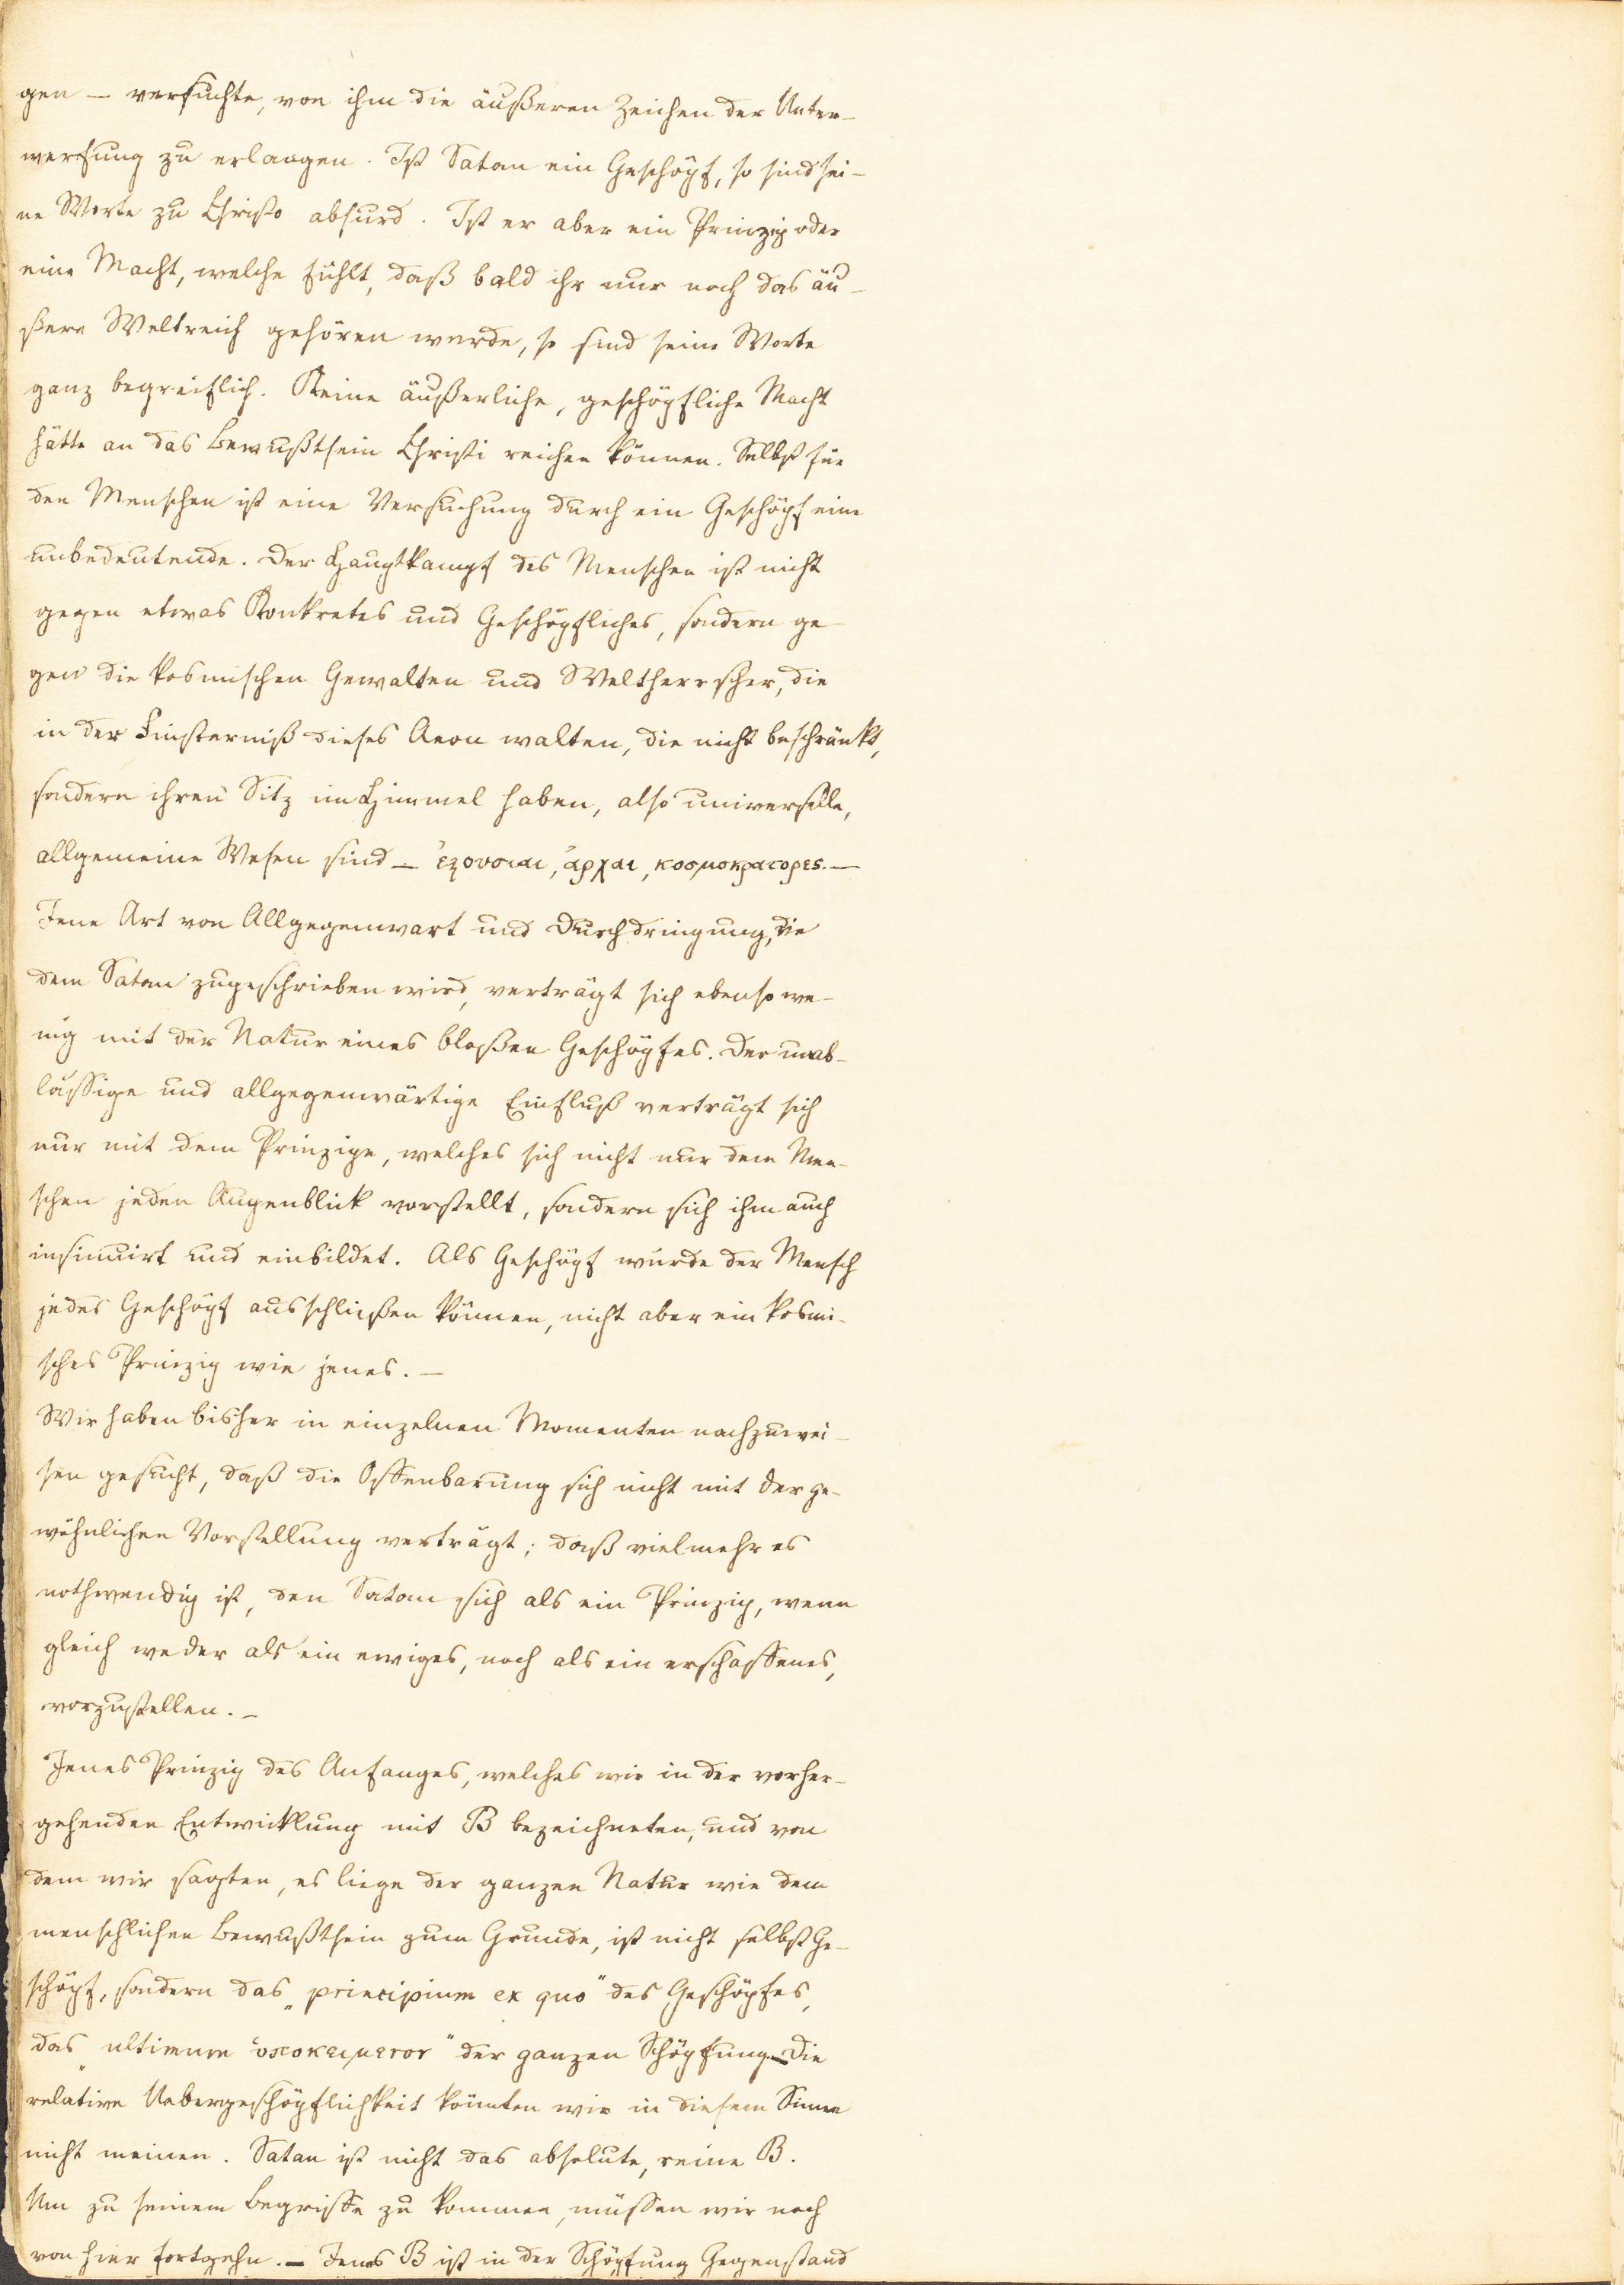 gen — versuchte, von ihm die äußeren Zeichen der Unter-
werfung zu erlangen. Ist Satan ein Geschöpf, so sind sei-
ne Worte zu Christo absurd. Ist er aber ein Prinzip oder
eine Macht, welche fühlt, daß bald ihr nur noch das äu-
ßere Weltreich gehören werde, so sind seine Worte
ganz begreiflich. Keine äußerliche, geschöpfliche Macht
hätte an das Bewußtsein Christi reichen können. Selbst für
den Menschen ist eine Versuchung durch ein Geschöpf eine
unbedeutende. Der Hauptkampf des Menschen ist nicht
gegen etwas Konkretes und Geschöpfliches, sondern ge-
gen die kosmischen Gewalten und Weltherrscher, die
in der Finsterniß dieses Aeon walten, die nicht beschränkt,
sondern ihren Sitz im Himmel haben, also universelle,
allgemeine Wesen sind — ἐξουσιαι, ἀρχαι, κοσμοκρατορες. —
Jene Art von Allgegenwart und Durchdringung, die
dem Satan zugeschrieben wird, verträgt sich ebenso we-
nig mit der Natur eines bloßen Geschöpfes. Der unab-
lässige und allgegenwärtige Einfluß verträgt sich
nur mit dem Prinzipe, welches sich nicht nur dem Men-
schen jeden Augenblick vorstellt, sondern sich ihm auch
insinuirt und einbildet. Als Geschöpf würde der Mensch
jedes Geschöpf ausschließen können, nicht aber ein kosmi-
sches Prinzip wie jenes. —
Wir haben bisher in einzelnen Momenten nachzuwei-
sen gesucht, daß die Offenbarung sich nicht mit der ge-
wöhnlichen Vorstellung verträgt; daß vielmehr es
nothwendig ist, den Satan sich als ein Prinzip, wenn
gleich weder als ein ewiges, noch als ein erschaffenes,
vorzustellen. —
Jenes Prinzip des Anfanges, welches wir in der vorher-
gehenden Entwicklung mit B bezeichneten, und von
dem wir sagten, es liege der ganzen Natur wie dem
menschlichen Bewußtsein zum Grunde, ist nicht selbst Ge-
schöpf, sondern das „principium ex quo" des Geschöpfes,
das „ultimum ὑποκειμενον" der ganzen Schöpfung. — Die
relative Uebergeschöpflichkeit könnten wir in diesem Sinne
nicht meinen. Satan ist nicht das absolute, reine B.
Um zu seinem Begriffe zu kommen, müssen wir noch
von hier fortgehn. — Jenes B ist in der Schöpfung Gegenstand